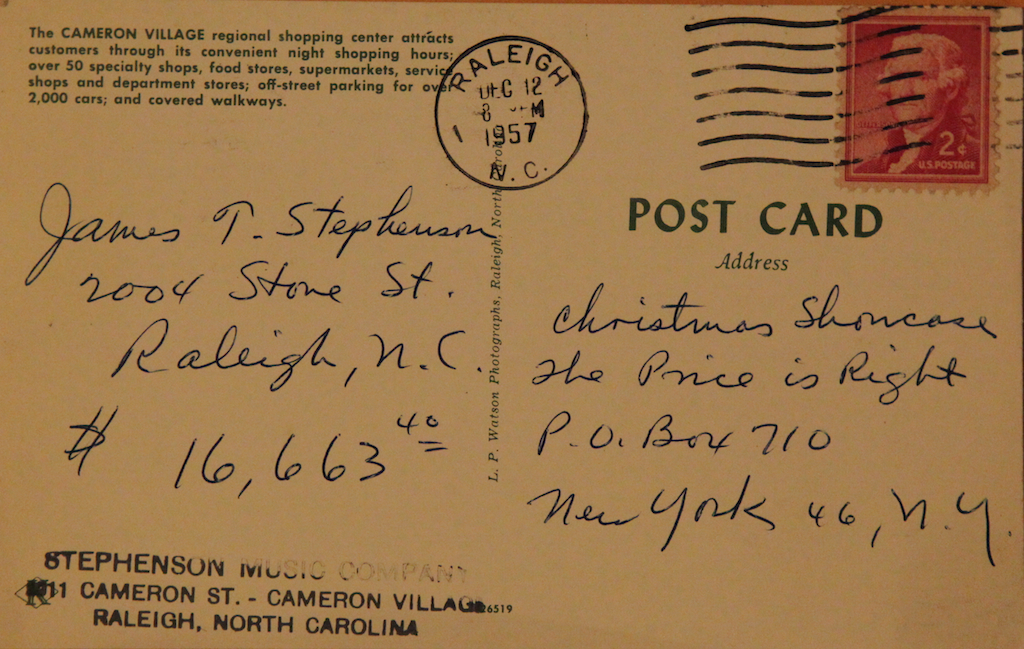 The CAMERON VILLAGE regional shopping center attracts
customers through its convenient night shopping hours;
over 50 specialty shops, food stores, supermarkets, service
shops and department stores; off-street parking for over
2,000 cars; and covered walkways.
RALEIGH
DEC 12
8 PM
1957
N.C.
2¢
U.S. POSTAGE
POST CARD
Address
James T. Stephenson
2004 Stone St.
Raleigh, N.C.
$ 16,663 40
L. P. Watson Photographs, Raleigh, North Carolina
Christmas Showcase
The Price is Right
P.O. Box 710
New York 46, N.Y.
STEPHENSON MUSIC COMPANY
CAMERON ST. - CAMERON VILLAGE
RALEIGH, NORTH CAROLINA
26519